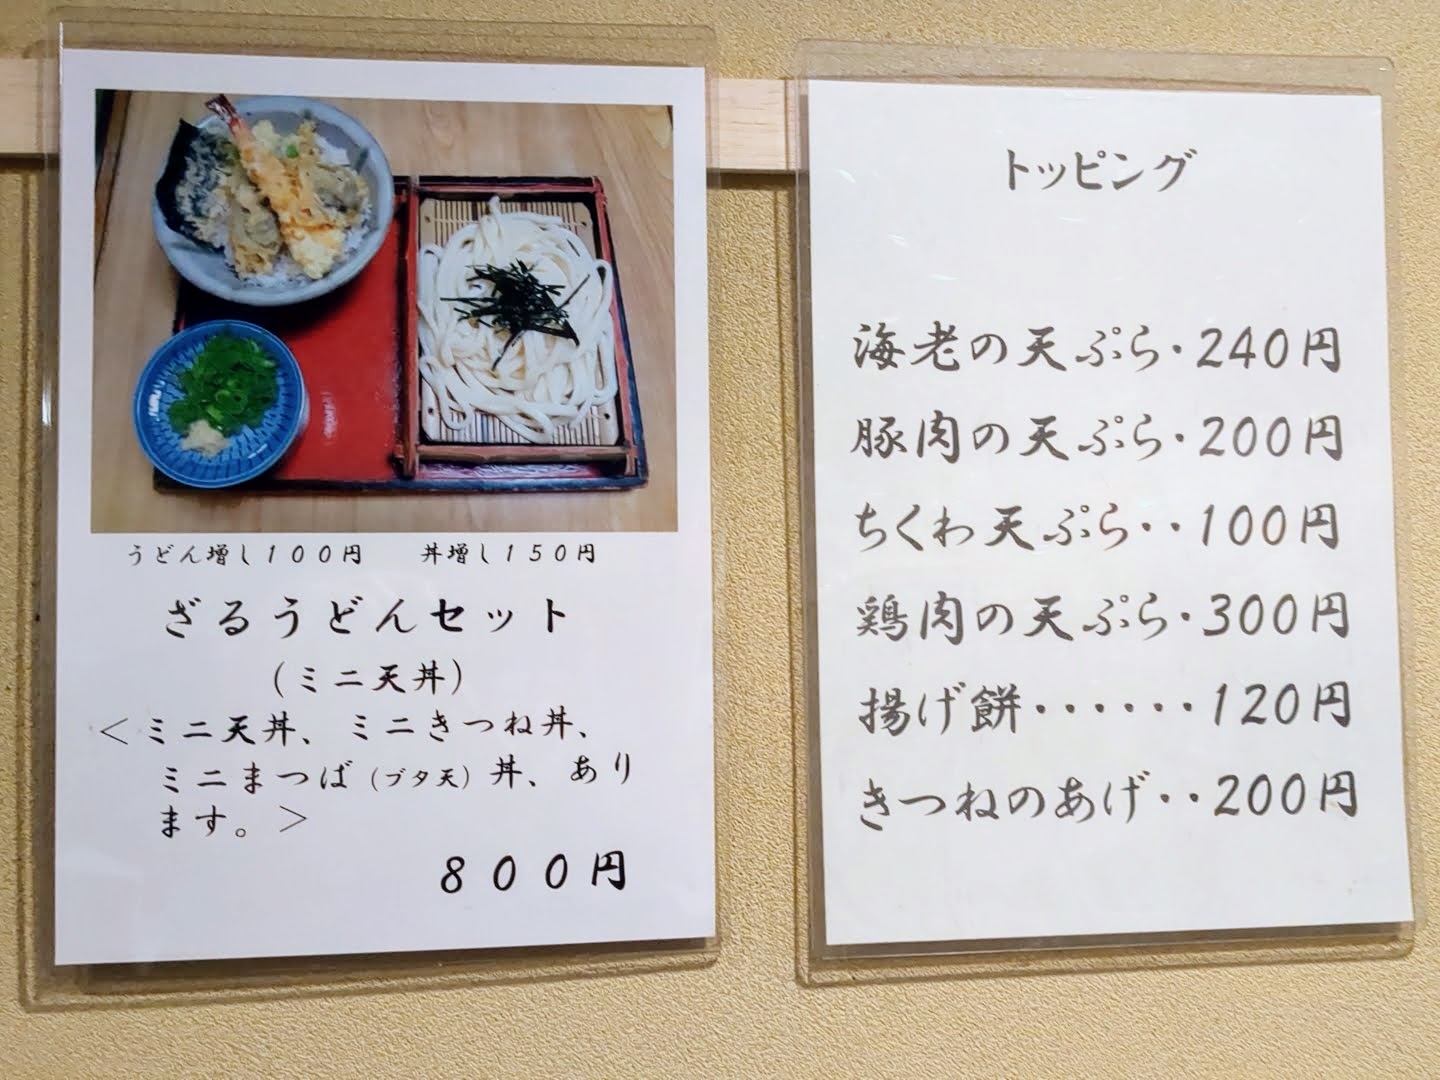 うどん増し100円　丼増し150円
ざるうどんセット
(ミニ天丼)
<ミニ天丼、ミニきつね丼、
ミニまつば(ブタ天)丼、あり
ます。>
800円
トッピング
海老の天ぷら・240円
豚肉の天ぷら・200円
ちくわ天ぷら・・100円
鶏肉の天ぷら・300円
揚げ餅・・・・・・120円
きつねのあげ・・200円